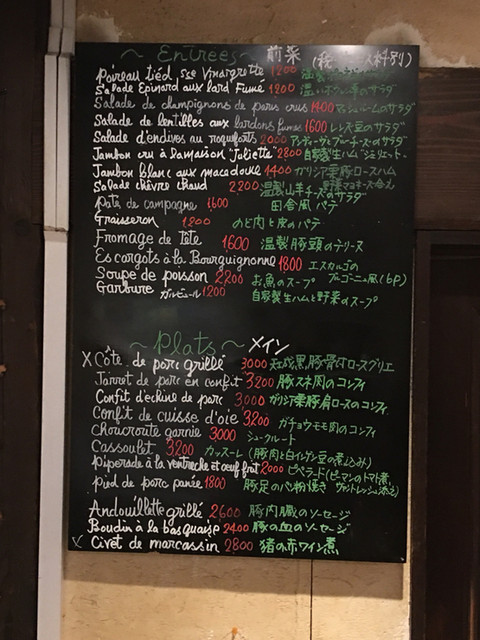 ~ Entrees ~ 前菜 (税・サ別)
Poireau tiéd sce Vinaigrette 1200
Salade Epinard aux Lard Fumé 1200
Salade de champignons de paris crus 1400 マッシュルームのサラダ
Salade de lentilles aux lardons fumés 1600 レンズ豆のサラダ
Salade d'endives au roquefort 2000 アンディーヴとブルーチーズのサラダ
Jambon cru à l'amaison "Joliette" 2800 自家製生ハム"ジュリエット"
Jambon blanc aux macedoine 1400 ガリシア栗豚ロースハム
野菜マヨネーズ和え
Salade chèvre chaud 2200 温製山羊チーズのサラダ
Pâté de campagne 1600 田舎風パテ
Graisseron 1200 のど肉と皮のパテ
Fromage de tête 1600 温製豚頭のテリーヌ
Escargots à la Bourguignonne 1800 エスカルゴの
ブルゴーニュ風 (6P)
Soupe de poisson 2200 お魚のスープ
Garbure ガルビュール 1200 自家製生ハムと野菜のスープ
~ Plats ~ メイン
X Côte de porc grillé 3000 黒豚骨付ロースグリエ
Jarret de porc en confit 3200 豚スネ肉のコンフィ
Confit d'échine de porc 3000 ガリシア栗豚肩ロースのコンフィ
Confit de cuisse d'oie 3200 ガチョウモモ肉のコンフィ
Choucroute garnie 3000 シュークルート
Cassoulet 3200 カッスーレ (豚肉と白インゲン豆の煮込み)
Piperade à la ventreche et oeuf frit 2000 ピペラード (ピーマンのトマト煮,
ヴァントレッシュ添え)
pied de porc panée 1800 豚足のパン粉焼き
Andouillette grillé 2600 豚内臓のソーセージ
Boudin à la basquaise 2400 豚の血のソーセージ
Civet de marcassin 2800 猪の赤ワイン煮